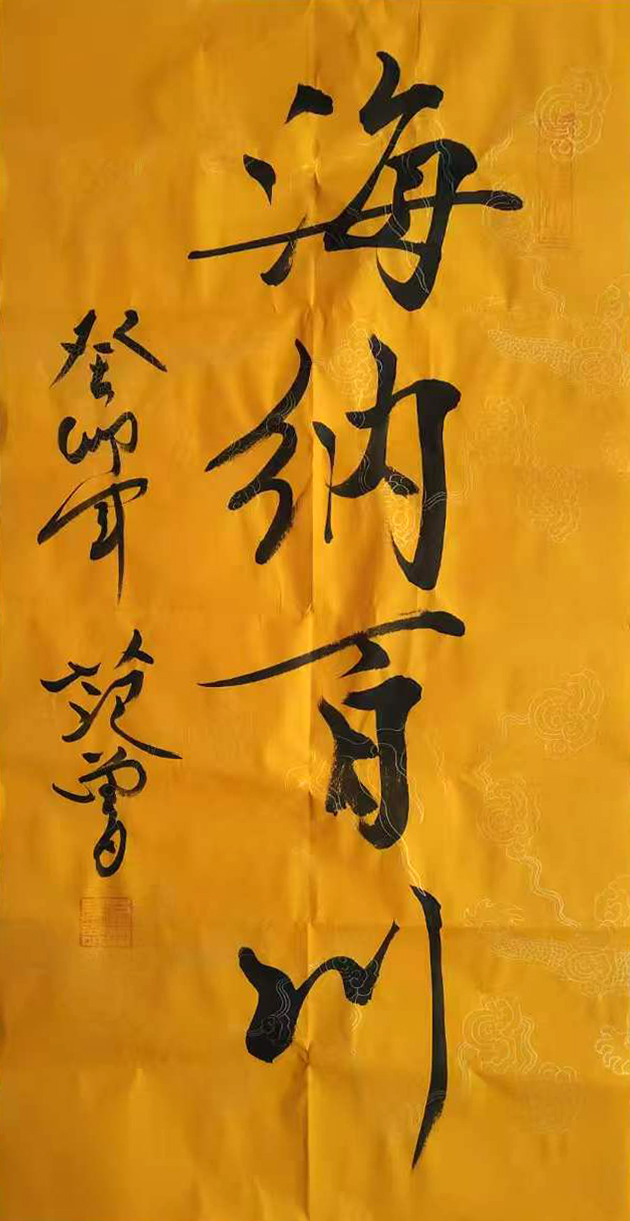 海纳百川
癸卯年 范曾